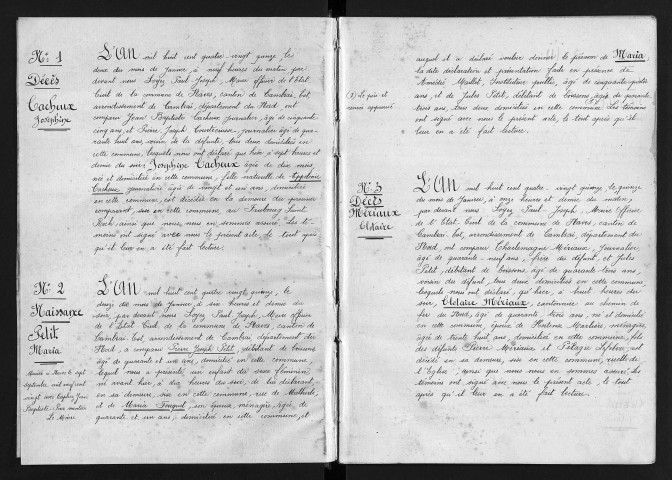 N° 1
Décès
Cacheux
Joséphine
L'An mil huit cent quatre-vingt quinze le
deux du mois de Janvier, à neuf heures du matin par
devant nous Paul Joseph, Maire officier de l'état
Civil de la commune de Naves, canton de Cambrai, Est,
arrondissement de Cambrai département du Nord, ont
comparu Jean Baptiste Cacheux journalier, âgé de cinquante
cinq ans et Pierre Joseph journalier âgé de qua-
rante huit ans, voisin de la défunte, tous deux domiciliés en
cette commune, lesquels nous ont déclaré que hier, à sept heures et
demie du soir, Joséphine Cacheux âgée de dix mois,
née et domiciliée en cette commune, fille naturelle de
Cacheux journalière âgée de vingt et un ans, domiciliée
en cette commune, est décédée en la demeure du premier
comparant, sise en cette commune, au Faubourg Saint
Roch, ainsi que nous nous en sommes assuré. Les té-
moins ont signé avec nous le présent acte, le tout après
qu'il leur en a été fait lecture.
N° 2
Naissance
Petit
Maria
Mariée à Naves le sept
septembre mil neuf cent
vingt avec
Baptiste
Le Maire
L'An mil huit cent quatre vingt quinze, le
onze du mois de Janvier, à dix heures et demie du
soir, par devant nous Paul Joseph, Maire officier
de l'Etat Civil de la commune de Naves, canton de
Cambrai Est, arrondissement de Cambrai département du
Nord, a comparu Pierre Joseph Petit, débitant de boissons
âgé de quarante et un ans, domicilié en cette commune
lequel nous a présenté un enfant du sexe féminin
né avant hier, à dix heures du soir, de lui déclarant,
en sa demeure, sise en cette commune, rue de
et de Maria son épouse, ménagère, âgée de
quarante et un ans, domiciliée en cette commune, et
auquel il a déclaré vouloir donner le prénom de Maria,
la dite déclaration et présentation faite en présence de
Amédée Maillot, Instituteur public, âgé de cinquante quatre
ans, et de Jules Petit, débitant de boissons, âgé de quarante
trois ans, tous deux domiciliés en cette commune. Les témoins
ont signé avec nous le présent acte, le tout après qu'il
leur en a été fait lecture.
N° 3
Décès
Mériaux
Clotaire
L'An mil huit cent quatre-vingt quinze, le quinze
du mois de Janvier, à onze heures et demie du matin,
par devant nous Paul Joseph, Maire Officier
de l'Etat Civil de la commune de Naves, canton de
Cambrai Est, arrondissement de Cambrai, département du
Nord, ont comparu Charlemagne Mériaux, Journalier
âgé de quarante-neuf ans, frère du défunt, et Jules
Petit, débitant de boissons, âgé de quarante trois ans,
voisin du défunt, tous deux domiciliés en cette commune
lesquels nous ont déclaré, que hier, à huit heures du
soir, Clotaire Mériaux, cantonnier au chemin de
fer du Nord, âgé de quarante trois ans, né et domicilié
en cette commune, époux de ménagère,
âgée de trente huit ans, domiciliée en cette commune, fils
des défunts Pierre Mériaux et Pélagie Lefebvre, est
décédé en sa demeure, sise en cette commune, ruelle de
l'Eglise, ainsi que nous nous en sommes assuré. Les
témoins ont signé avec nous le présent acte, le tout
après qu'il leur en a été fait lecture.